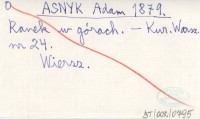 ASNYK Adam 1879.
Ranek w górach. – Kur. Warsz.
nr 24.
Wiersz.